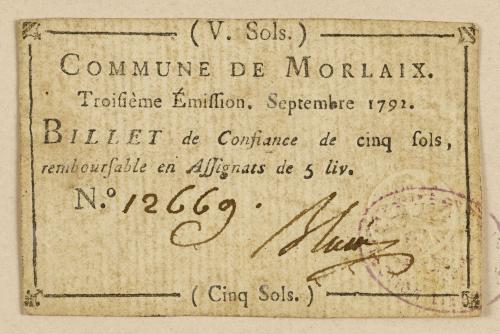 (V. Sols.)
COMMUNE DE MORLAIX.
Troiſième Émiſſion. Septembre 1792.
BILLET de Confiance de cinq ſols,
rembourſable en Aſſignats de 5 liv.
N.° 12669.
(Cinq Sols.)